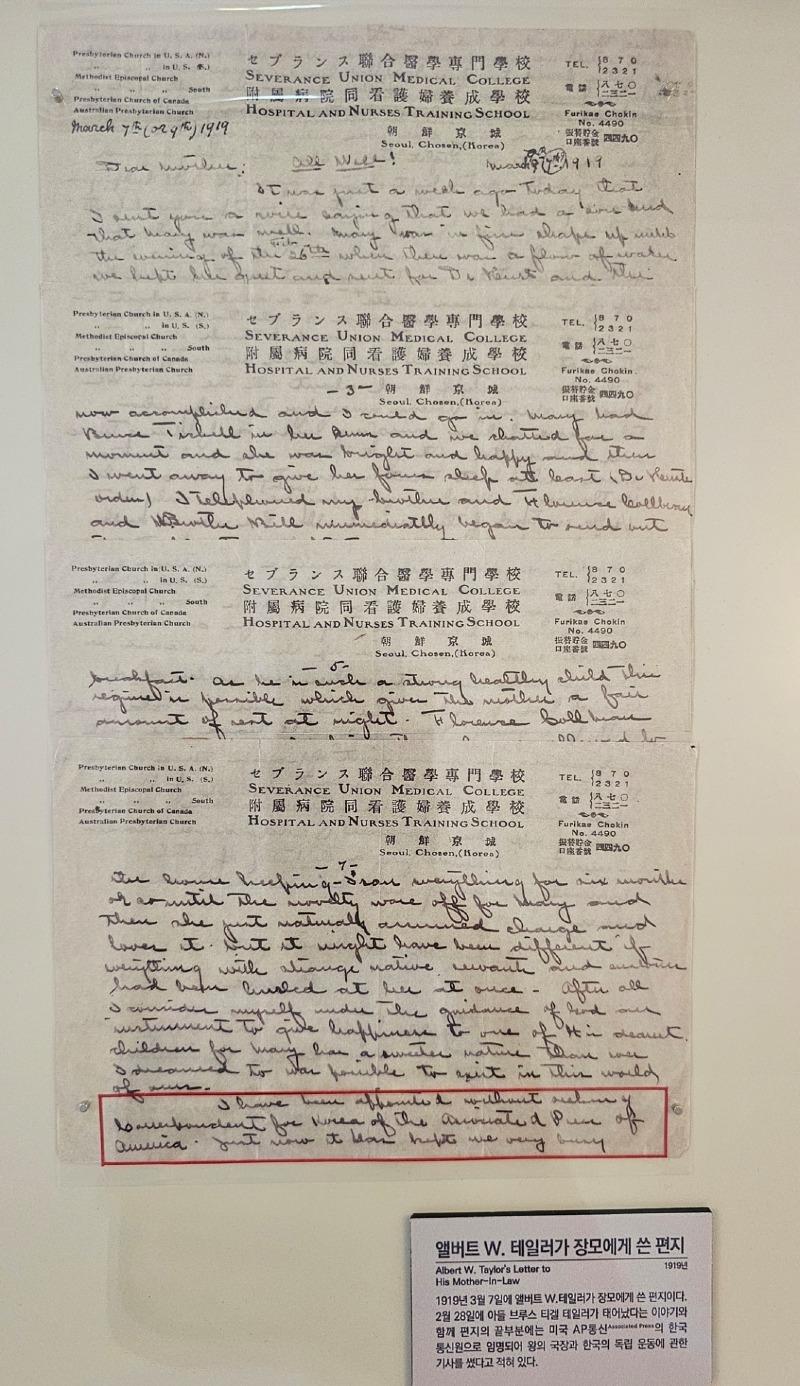 Presbyterian Church in U. S. A. (N.)
„ „ in U. S. (S.)
Methodist Episcopal Church
„ „ South
Presbyterian Church of Canada
Australian Presbyterian Church
セブランス聯合醫學專門學校
SEVERANCE UNION MEDICAL COLLEGE
附屬病院同看護婦養成學校
HOSPITAL AND NURSES TRAINING SCHOOL
朝鮮京城
Seoul, Chosen,(Korea)
TEL. 870
2321
電話 八七〇
二三二一
Furikae Chokin
No. 4490
振替貯金
口座番號 四四九〇
March 7th (or 9th) 1919
Dear Mother: All Well! March 1919
It was just a week ago today that
I sent you a wire saying that we had a son and
that Mary was well. Mary was in fine shape up until
the evening of the 26th when there was a flow of water
we kept her quiet and sent for Dr and the
Presbyterian Church in U. S. A. (N.)
„ „ in U. S. (S.)
Methodist Episcopal Church
„ „ South
Presbyterian Church of Canada
Australian Presbyterian Church
セブランス聯合醫學專門學校
SEVERANCE UNION MEDICAL COLLEGE
附屬病院同看護婦養成學校
HOSPITAL AND NURSES TRAINING SCHOOL
- 3 - 朝鮮京城
Seoul, Chosen,(Korea)
TEL. 870
2321
電話 八七〇
二三二一
Furikae Chokin
No. 4490
振替貯金
口座番號 四四九〇
now accomplished and I could go in. Mary had
Bruce Tickell in her arms and we chatted for a
moment and she was bright and happy and then
I went away to give her four sleep at least (Dr
orders) I telephoned my brother and Florence
and Brother Bill immediately began to send out
Presbyterian Church in U. S. A. (N.)
„ „ in U. S. (S.)
Methodist Episcopal Church
„ „ South
Presbyterian Church of Canada
Australian Presbyterian Church
セブランス聯合醫學專門學校
SEVERANCE UNION MEDICAL COLLEGE
附屬病院同看護婦養成學校
HOSPITAL AND NURSES TRAINING SCHOOL
朝鮮京城
Seoul, Chosen,(Korea)
TEL. 870
2321
電話 八七〇
二三二一
Furikae Chokin
No. 4490
振替貯金
口座番號 四四九〇
- 5 -
breakfast. As he is such a strong healthy child this
regime is possible which gives the mother a fair
amount of rest at night. Florence
Presbyterian Church in U. S. A. (N.)
„ „ in U. S. (S.)
Methodist Episcopal Church
„ „ South
Presbyterian Church of Canada
Australian Presbyterian Church
セブランス聯合醫學專門學校
SEVERANCE UNION MEDICAL COLLEGE
附屬病院同看護婦養成學校
HOSPITAL AND NURSES TRAINING SCHOOL
朝鮮京城
Seoul, Chosen,(Korea)
TEL. 870
2321
電話 八七〇
二三二一
Furikae Chokin
No. 4490
振替貯金
口座番號 四四九〇
- 7 -
the house keeping - I ran everything for six months
or so until the novelty wore off for Mary and
then she just naturally assumed charge and
loves it. But it might have been different if
everything with strange native servants and
had been hurled at her at once - After all
I consider myself under the guidance of God an
instrument to give happiness to one of His dearest
children for Mary has a sweeter nature than ever
I dreamed to was possible to exist in this world
of ours.
I have been appointed without
Correspondent for Korea of the Associated Press of
America. Just now it has kept me very busy
앨버트 W. 테일러가 장모에게 쓴 편지
Albert W. Taylor's Letter to 1919년
His Mother-In-Law
1919년 3월 7일에 앨버트 W.테일러가 장모에게 쓴 편지이다.
2월 28일에 아들 브루스 티켈 테일러가 태어났다는 이야기와
함께 편지의 끝부분에는 미국 AP통신Associated Press의 한국
통신원으로 임명되어 왕의 국장과 한국의 독립 운동에 관한
기사를 썼다고 적혀 있다.